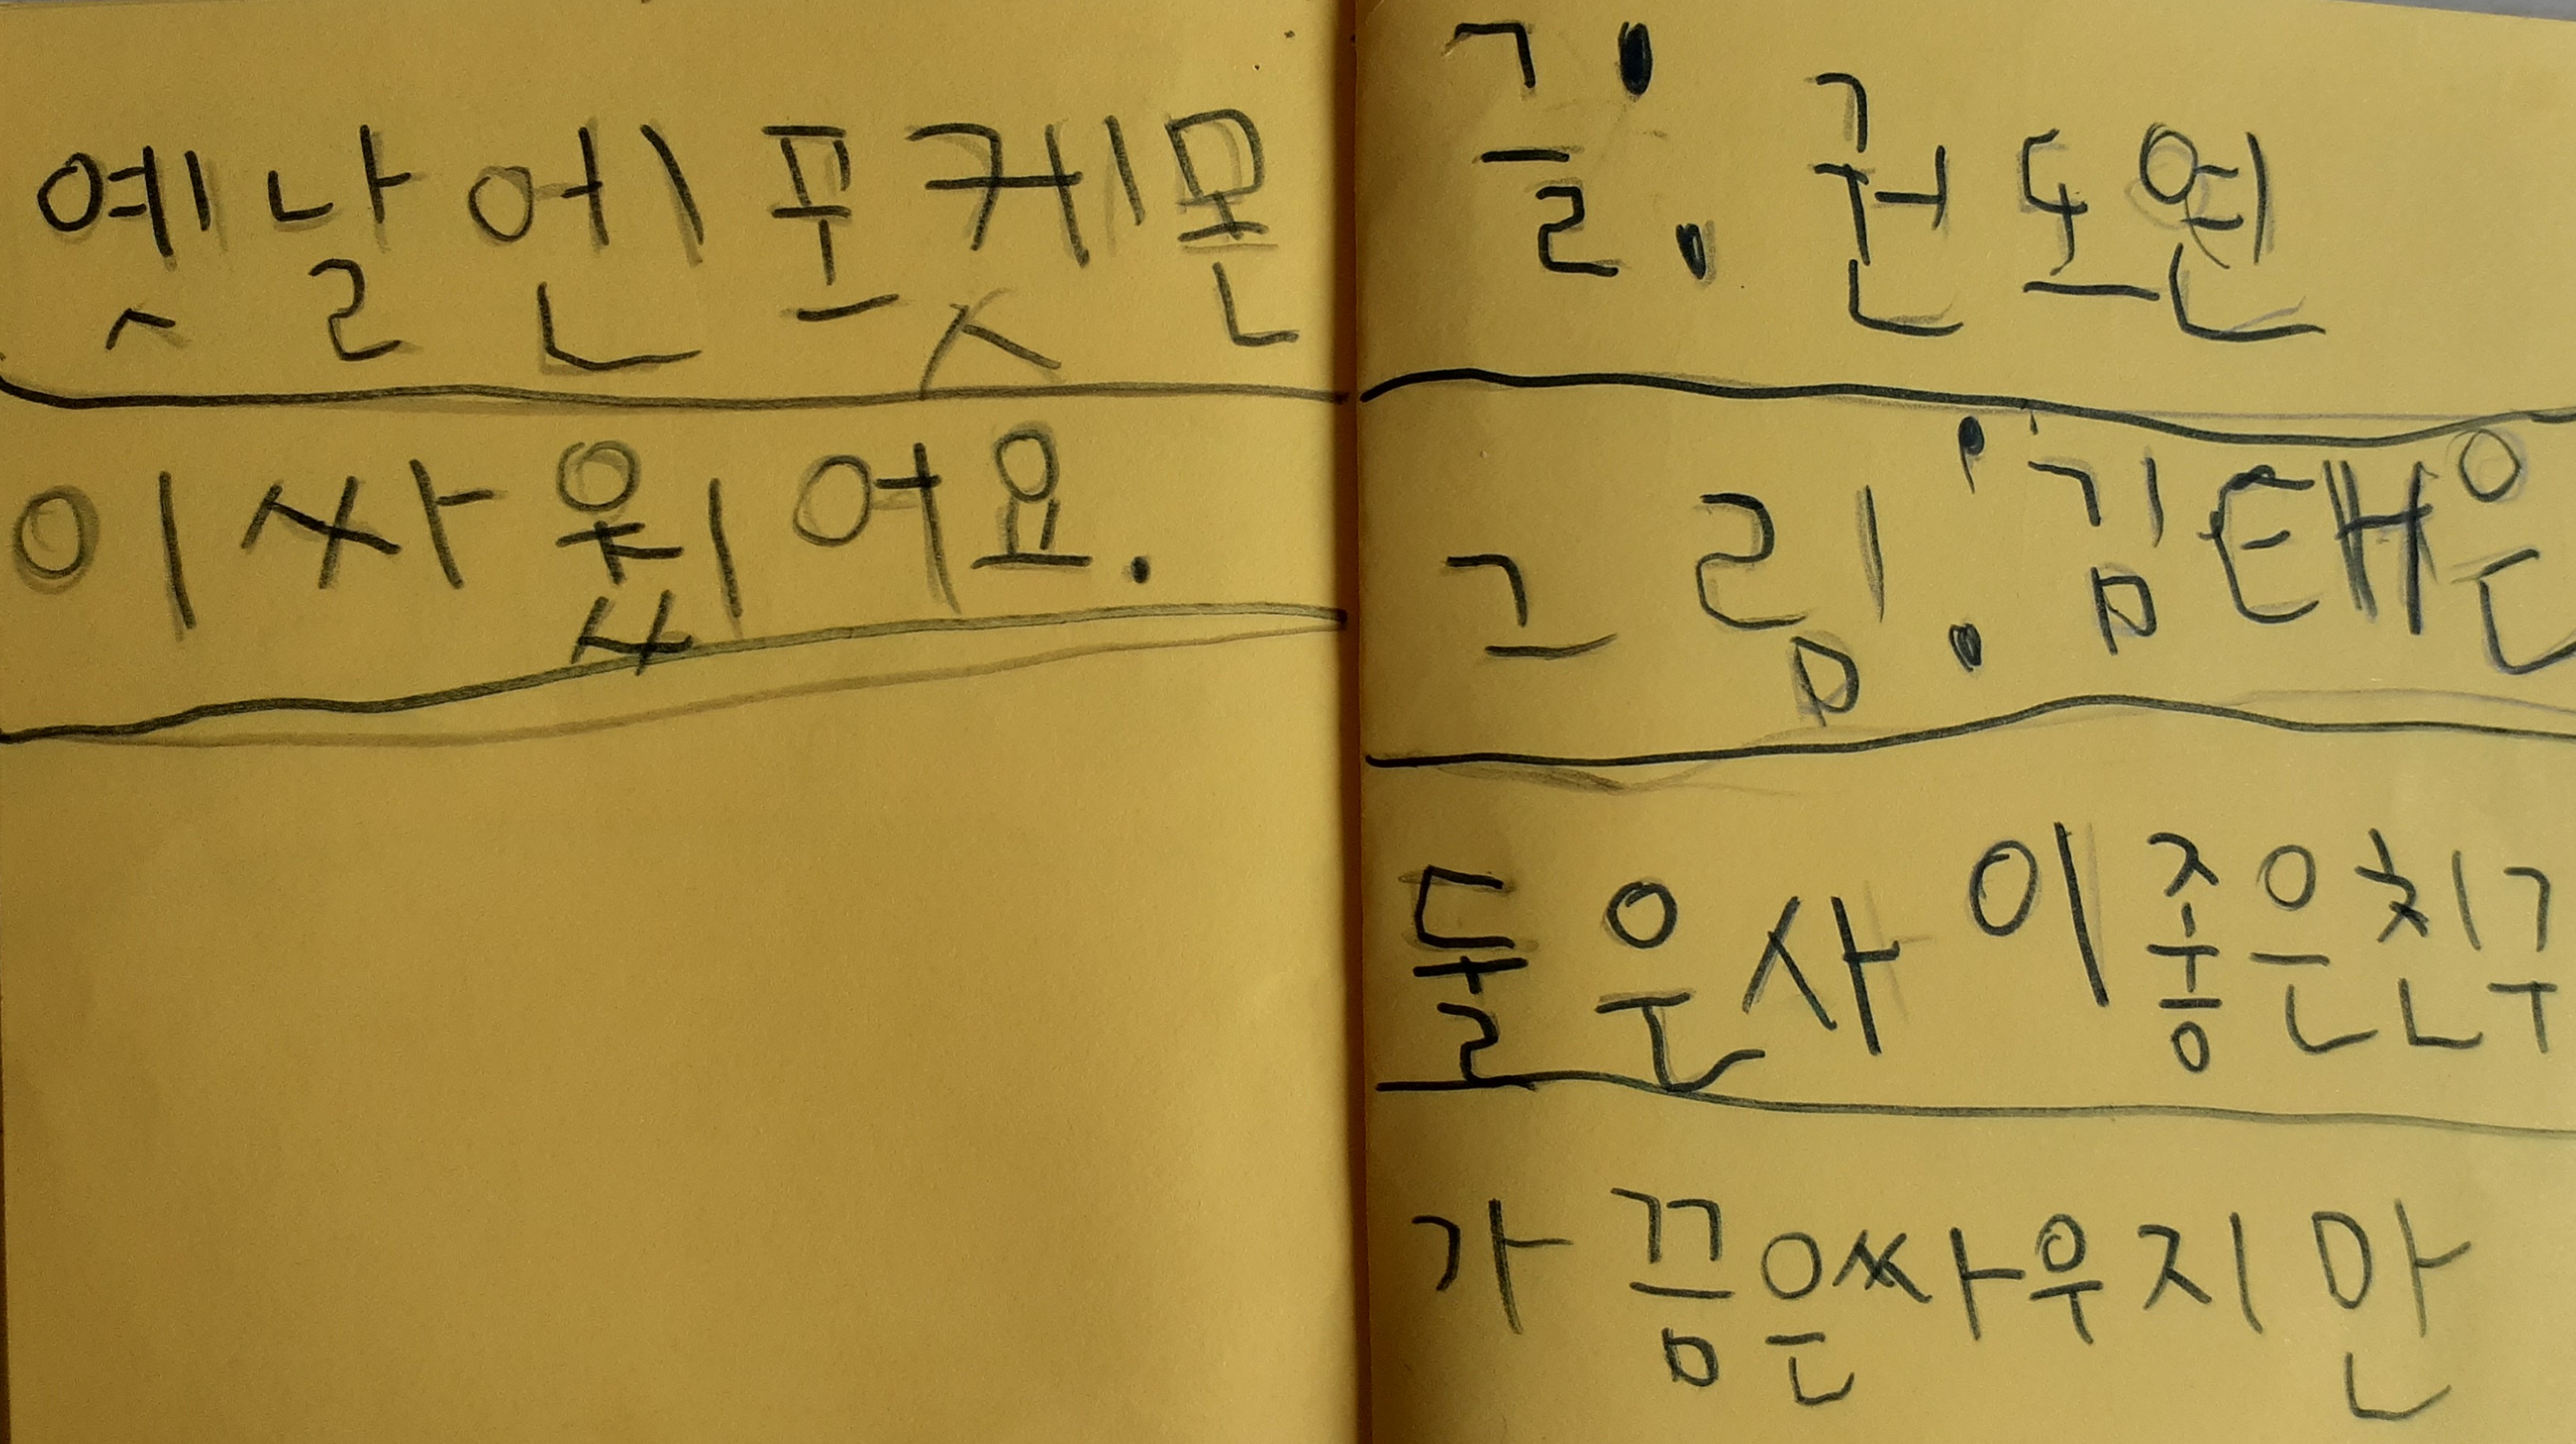 옛날엔포켓몬
이싸웠어요.
글: 권도연
그림:김태은
둘은사이좋은친구
가끔은싸우지만